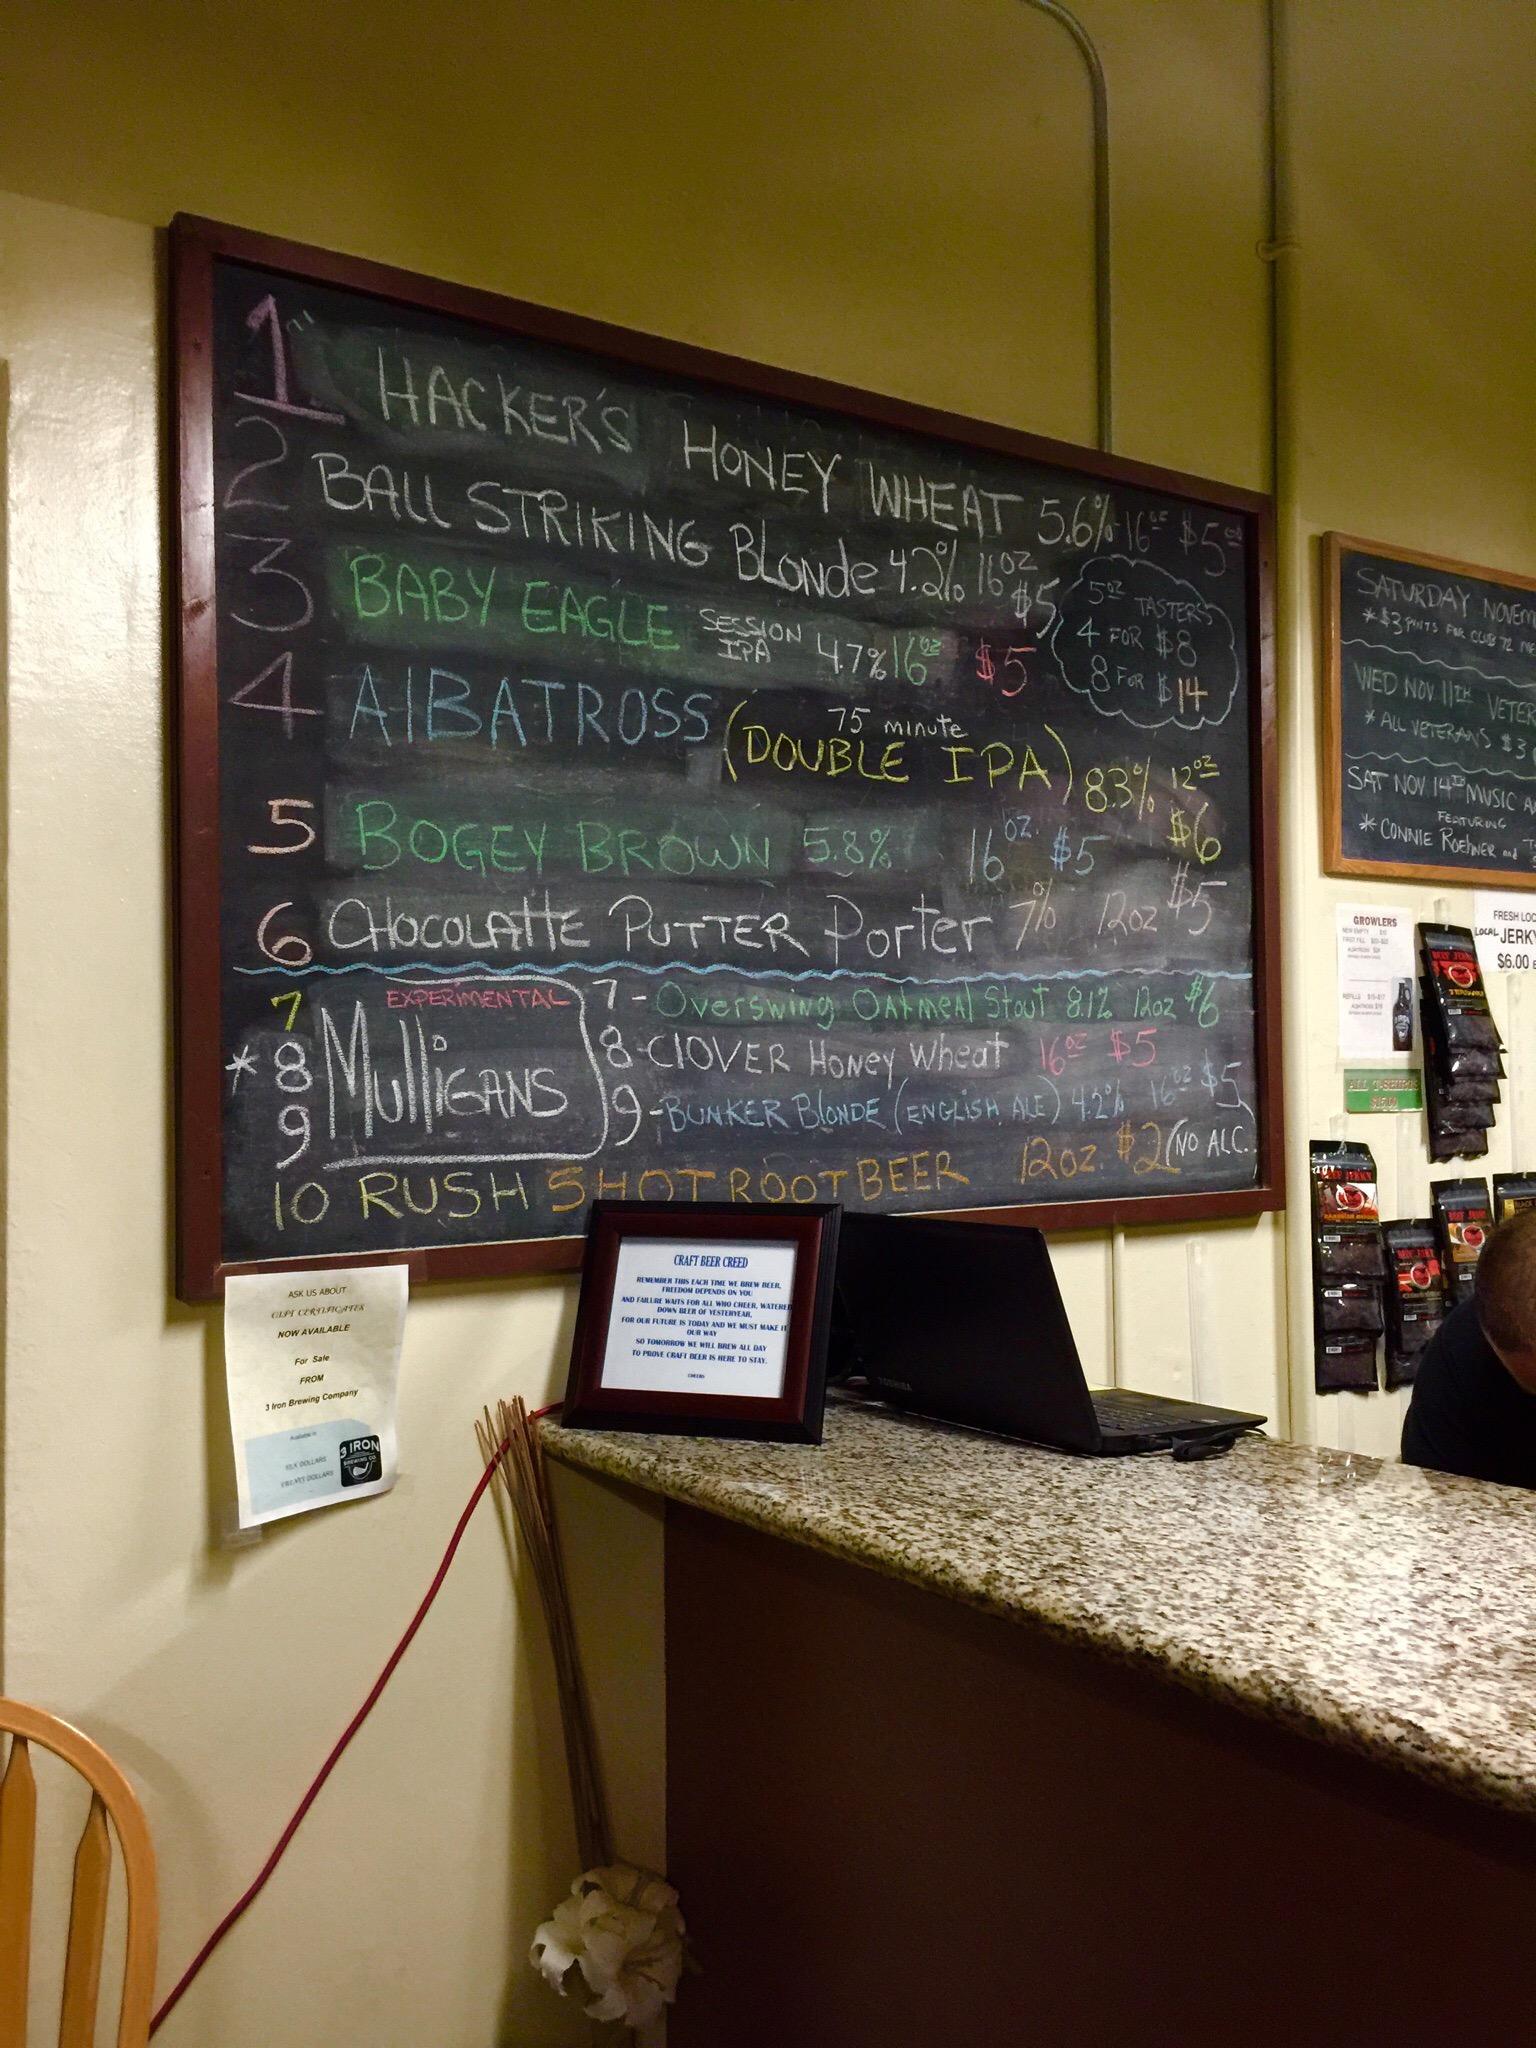 1 HACKER'S HONEY WHEAT 5.6% 16oz $5.00
2 BALL STRIKING BLONDE 4.2% 16OZ $5
3 BABY EAGLE SESSION IPA 4.7% 16oz $5
5oz TASTERS
4 FOR $8
8 FOR $14
4 ALBATROSS (75 minute DOUBLE IPA) 8.3% 12oz $6
5 BOGEY BROWN 5.8% 16 oz. $5
6 CHOCOLATTE PUTTER Porter 7% 12oz $5
7
*8
9
EXPERIMENTAL
MullIGANS
7- Overswing Oatmeal Stout 8.1% 12oz $6
8- ClOVER Honey Wheat 16oz $5
9- BUNKER BLONDE (ENGLISH ALE) 4.2% 16oz $5
10 RUSH 5HOT ROOT BEER 12oz. $2 (NO ALC.
SATURDAY
*$3 PINTS FOR CLUB 72
WED NOV 11TH
*ALL VETERANS $3
SAT NOV 14TH MUSIC
FEATURING
*CONNIE Roehner and
GROWLERS
NEW EMPTY
FIRST FILL
REFILLS
FRESH
LOCAL JERKY
$6.00
ALL T-SHIRTS
$15.00
BEEF JERKY
BEEF JERKY
BEEF JERKY
ASK US ABOUT
GIFT CERTIFICATES
NOW AVAILABLE
For Sale
FROM
3 Iron Brewing Company
Available in
DOLLARS
DOLLARS
3 IRON
BREWING CO.
CRAFT BEER CREED
REMEMBER THIS EACH TIME WE BREW BEER,
FREEDOM DEPENDS ON YOU
AND FAILURE WAITS FOR ALL WHO CHEER, WATERED
DOWN BEER OF YESTERYEAR,
FOR OUR FUTURE IS TODAY AND WE MUST MAKE IT
OUR WAY
SO TOMORROW WE WILL BREW ALL DAY
TO PROVE CRAFT BEER IS HERE TO STAY.
CHEERS
TOSHIBA